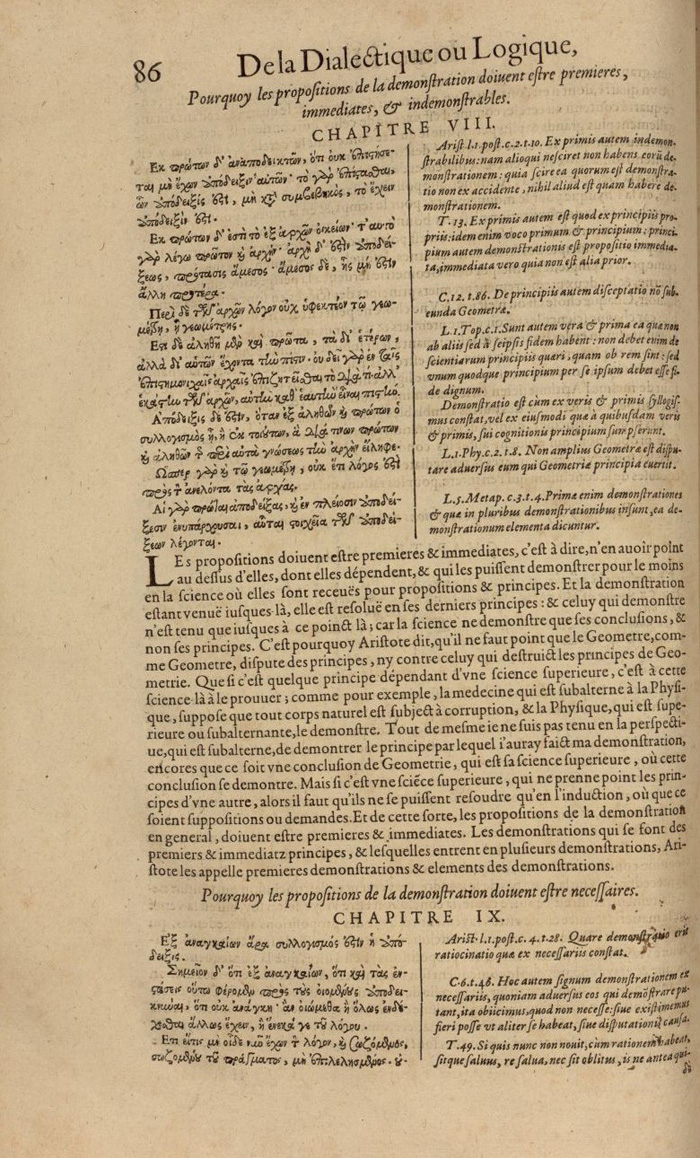 86
De la Dialectique ou Logique,
Pourquoy les propositions de la demonſtration doiuent eſtre premieres,
immediates, & indemonſtrables.
CHAPITRE VIII.
Ἐκ πρώτων δ' ἀναποδεικτῶν, ὅτι οὐκ ἐπιστήσε-
ται μὴ ἔχων ἀπόδειξιν αὐτῶν· τὸ γὰρ ἐπίστασθαι,
ὧν ἀπόδειξις ἐστὶ, μὴ κατὰ συμβεβηκὸς, τὸ ἔχειν
ἀπόδειξίν ἐστι.
Ἐκ πρώτων δ' ἐστὶ τὸ ἐξ ἀρχῶν οἰκείων· τ' αυτὸ
γὰρ λέγω πρῶτον καὶ ἀρχήν· ἀρχὴ δ' ἐστὶν ἀποδεί-
ξεως, πρότασις ἄμεσος· ἄμεσος δὲ, ἧς μή ἐστιν
ἄλλη προτέρα.
Περὶ δὲ τῶν ἀρχῶν λόγον οὐχ ὑφεκτέον τῷ γεω-
μέτρῃ, ᾗ γεωμέτρης.
Ἐστι δὲ ἀληθῆ μὲν καὶ πρῶτα, τὰ μὴ δι' ἑτέρων,
ἀλλὰ δι' αὑτῶν ἔχοντα τὴν πίστιν· οὐ δεῖ γὰρ ἐν ταῖς
ἐπιστημονικαῖς ἀρχαῖς ἐπιζητεῖσθαι τὸ διὰ τί· ἀλλ'
ἑκάστην τῶν ἀρχῶν, αὐτὴν καθ' ἑαυτὴν εἶναι πιστήν.
Ἀπόδειξις δέ ἐστιν, ὅταν ἐξ ἀληθῶν καὶ πρώτων ὁ
συλλογισμὸς ᾖ, ἢ ἐκ τοιούτων, ἃ διά τινων πρώτων
καὶ ἀληθῶν τῆς περὶ αὐτὰ γνώσεως τὴν ἀρχὴν εἴληφε.
Ὥσπερ γὰρ καὶ τῷ γεωμέτρῃ, οὐκ ἔτι λόγος ἐστὶ
πρὸς τὸν ἀνελόντα τὰς ἀρχάς.
Αἱ γὰρ πρῶται ἀποδείξεις, καὶ ἐν πλείοσιν ἀποδεί-
ξεσιν ἐνυπάρχουσαι, αὗται στοιχεῖα τῶν ἀποδεί-
ξεων λέγονται.
Ariſt. l.1. poſt. c.2. t.10. Ex primis autem indemon-
ſtrabilibus: nam alioqui neſciret non habens eorū de-
monſtrationem: quia ſcire ea quorum eſt demonſtra-
tio non ex accidente, nihil aliud eſt quam habere de-
monſtrationem.
T. 13. Ex primis autem eſt quod ex principiis pro-
priis: idem enim voco primum & principium: princi-
pium autem demonſtrationis eſt propoſitio immedia-
ta, immediata vero qua non eſt alia prior.
C.12. t.86. De principiis autem diſceptatio nō ſub-
eunda Geometræ.
L.1. Top. c.1. Sunt autem vera & prima ea quæ non
ab aliis ſed à ſeipſis fidem habent: non debet enim de
ſcientiarum principiis quæri, quam ob rem ſint: ſed
vnum quodque principium per ſe ipſum debet eſſe fi-
de dignum.
Demonſtratio eſt cum ex veris & primis ſyllogiſ-
mus conſtat, vel ex eiuſmodi quæ à quibuſdam veris
& primis, ſui cognitionis principium ſumpſerunt.
L.1. Phy. c.2. t.8. Non amplius Geometræ eſt diſpu-
tare aduerſus eum qui Geometriæ principia euertit.
L.5. Metap. c.3. t.4. Primæ enim demonſtrationes
& quæ in pluribus demonſtrationibus inſunt, ea de-
monſtrationum elementa dicuntur.
LEs propoſitions doiuent eſtre premieres & immediates, c'eſt à dire, n'en auoir point
au deſſus d'elles, dont elles dépendent, & qui les puiſſent demonſtrer pour le moins
en la ſcience où elles ſont receuës pour propoſitions & principes. Et la demonſtration
eſtant venuë iuſques là, elle eſt reſoluë en ſes derniers principes: & celuy qui demonſtre
n'eſt tenu que iuſques à ce poinct là; car la ſcience ne demonſtre que ſes concluſions, &
non ſes principes. C'eſt pourquoy Ariſtote dit, qu'il ne faut point que le Geometre, com-
me Geometre, diſpute des principes, ny contre celuy qui deſtruict les principes de Geo-
metrie. Que ſi c'eſt quelque principe dépendant d'vne ſcience ſuperieure, c'eſt à cette
ſcience là à le prouuer; comme pour exemple, la medecine qui eſt ſubalterne à la Phyſi-
que, ſuppoſe que tout corps naturel eſt ſubject à corruption, & la Phyſique, qui eſt ſupe-
rieure ou ſubalternante, le demonſtre. Tout de meſme ie ne ſuis pas tenu en la perſpecti-
ue, qui eſt ſubalterne, de demontrer le principe par lequel i'auray faict ma demonſtration,
encores que ce ſoit vne concluſion de Geometrie, qui eſt ſa ſcience ſuperieure, où cette
concluſion ſe demontre. Mais ſi c'eſt vne ſciēce ſuperieure, qui ne prenne point les prin-
cipes d'vne autre, alors il faut qu'ils ne ſe puiſſent reſoudre qu'en l'induction, où que ce
ſoient ſuppoſitions ou demandes. Et de cette ſorte, les propoſitions de la demonſtration
en general, doiuent eſtre premieres & immediates. Les demonſtrations qui ſe font des
premiers & immediatz principes, & leſquelles entrent en pluſieurs demonſtrations, Ari-
ſtote les appelle premieres demonſtrations & elements des demonſtrations.
Pourquoy les propoſitions de la demonſtration doiuent eſtre neceſſaires.
CHAPITRE IX.
Ἐξ ἀναγκαίων ἄρα συλλογισμός ἐστιν ἡ ἀπό-
δειξις.
Σημεῖον δ' ὅτι ἐξ ἀναγκαίων, ὅτι καὶ τὰς ἐν-
στάσεις οὕτω φέρομεν πρὸς τοὺς οἰομένους ἀποδει-
κνύναι, ὅτι οὐκ ἀνάγκη· ἂν οἰώμεθα ἢ ὅλως ἐνδέ-
χεσθαι ἄλλως ἔχειν, ἢ ἕνεκά γε τοῦ λόγου.
Ἔτι εἴ τις μὴ οἶδε νῦν ἔχων τὸν λόγον, καὶ σωζόμενος,
σωζομένου τοῦ πράγματος, μὴ ἐπιλελησμένος· οὐ-
Ariſt. l.1. poſt. c. 4. t.28. Quare demonſtratio erit
ratiocinatio quæ ex neceſſariis conſtat.
C.6. t.46. Hoc autem ſignum demonſtrationem ex
neceſſariis, quoniam aduerſus eos qui demōſtrare pu-
tant, ita obiicimus, quod non neceſſe: ſiue exiſtimemus
fieri poſſe vt aliter ſe habeat, ſiue diſputationis cauſa.
T.49. Si quis nunc non nouit, cùm rationem habeat,
ſitque ſaluus, re ſalua, nec ſit oblitus, is ne antea qui-
de